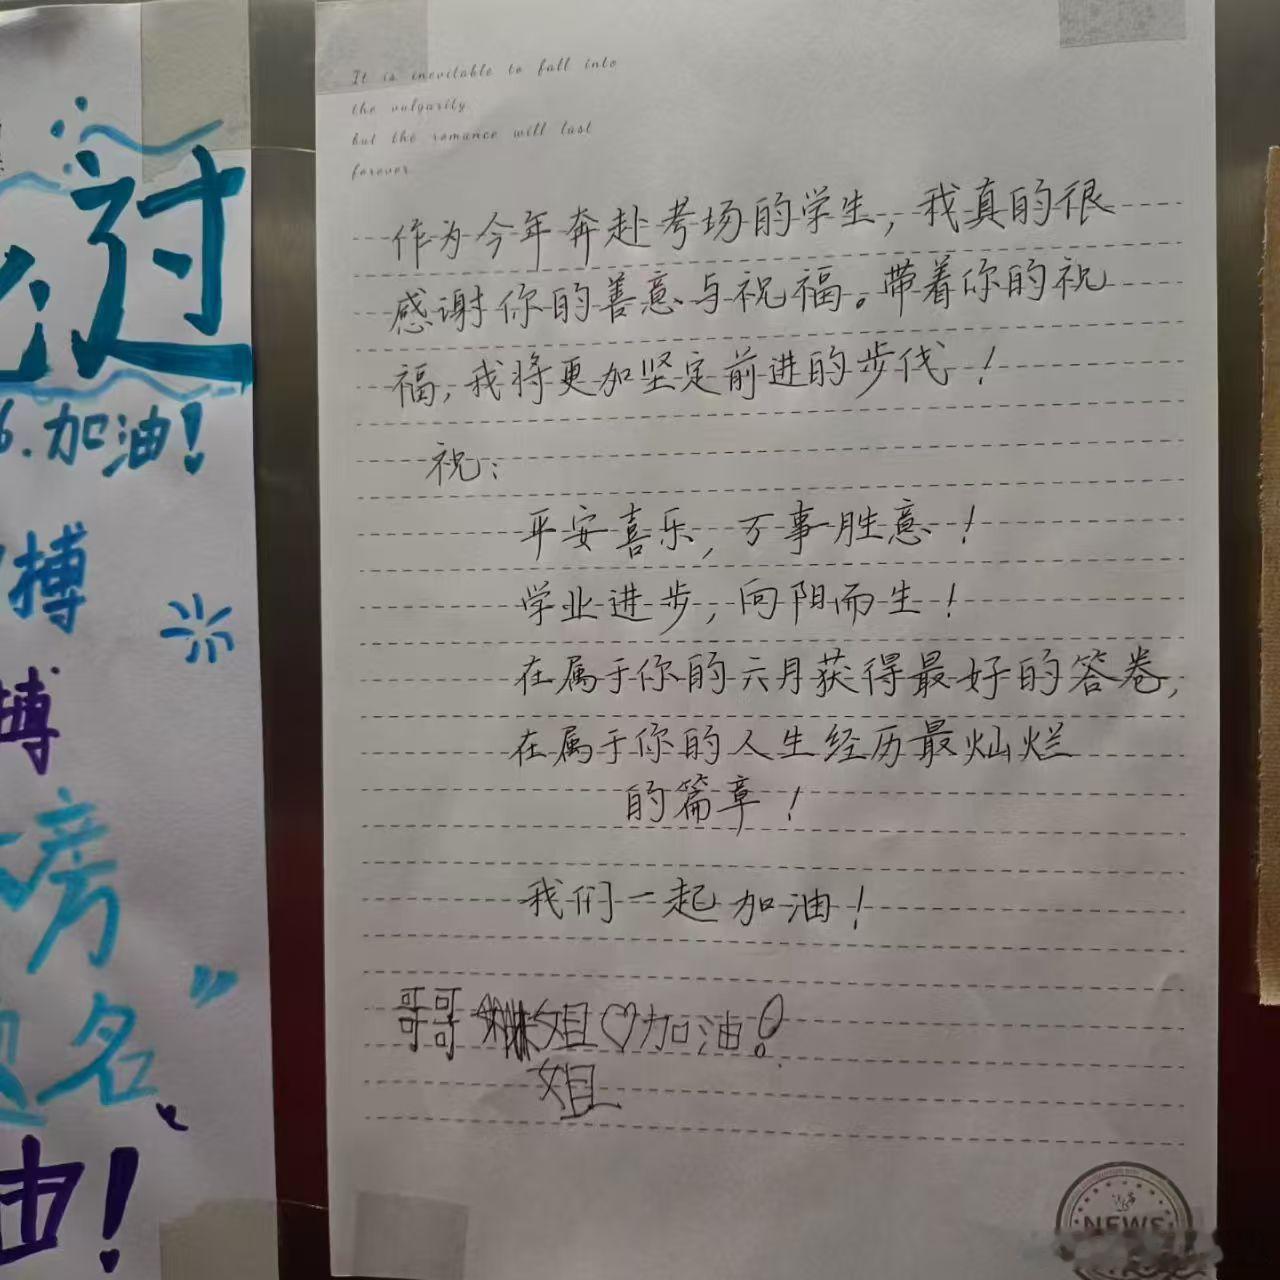 过
6.加油!
搏
搏
榜
名
油!
It is inevitable to fall into
the vulgarity
but the romance will last
forever
作为今年奔赴考场的学生，我真的很
感谢你的善意与祝福。带着你的祝
福，我将更加坚定前进的步伐！
祝：
平安喜乐，万事胜意！
学业进步，向阳而生！
在属于你的六月获得最好的答卷，
在属于你的人生经历最灿烂
的篇章！
我们一起加油！
哥哥 姐♡加油！
姐
NEWS